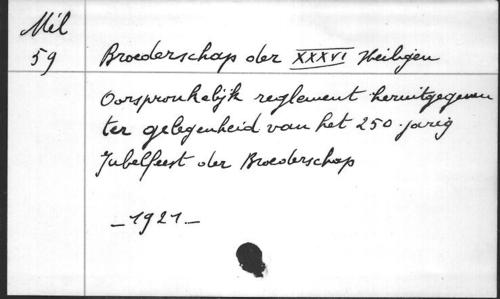 Mél
59
Broederschap der XXXVI Heiligen
Oorspronkelijk reglement heruitgegeven
ter gelegenheid van het 250-jarig
Jubelfeest der Broederschap
- 1921 -